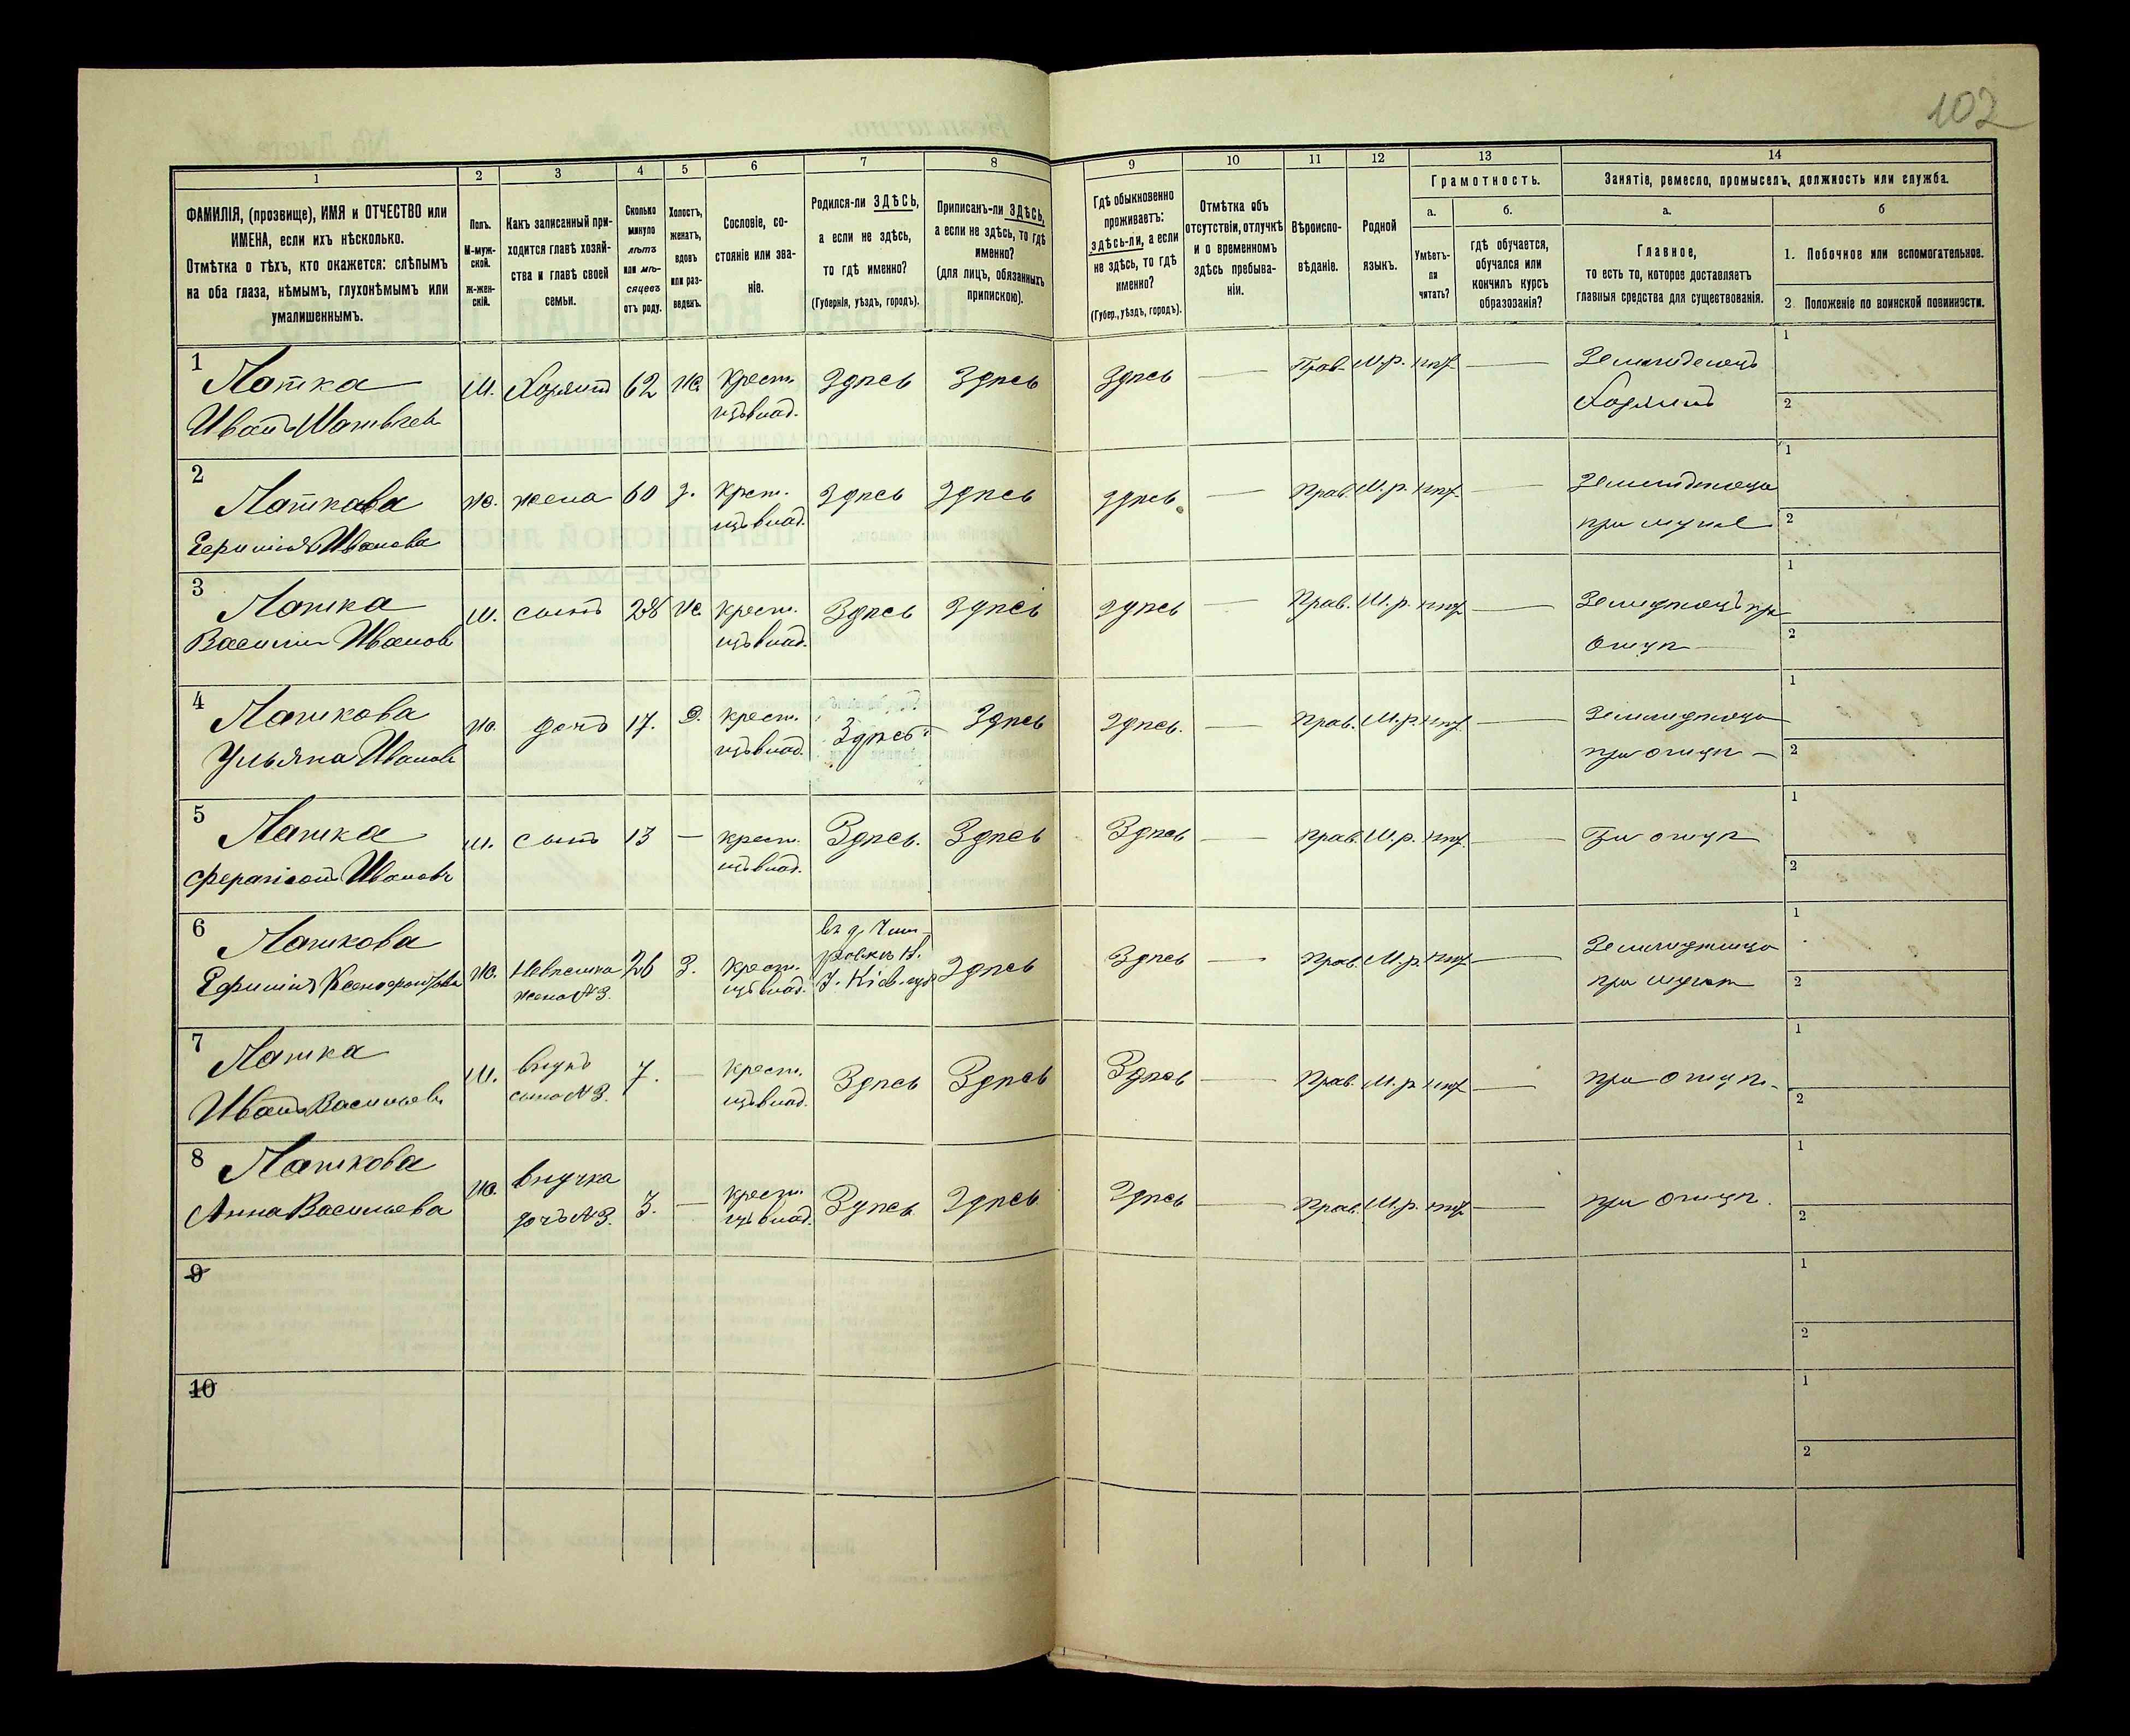 102
1 2 3 4 5 6 7 8 9 10 11 12 13 14
ФАМИЛІЯ, (прозвище), ИМЯ и ОТЧЕСТВО или
ИМЕНА, если ихъ нѣсколько.
Отмѣтка о тѣхъ, кто окажется: слѣпымъ
на оба глаза, нѣмымъ, глухонѣмымъ или
умалишеннымъ.
Полъ.
М-муж-
ской.
ж-жен-
скій.
Какъ записанный при-
ходится главѣ хозяй-
ства и главѣ своей
семьи.
Сколько
минуло
лѣтъ
или мѣ-
сяцевъ
отъ роду.
Холостъ,
женатъ,
вдовъ
или раз-
веденъ.
Сословіе, со-
стояніе или зва-
ніе.
Родился-ли ЗДѢСЬ,
а если не здѣсь,
то гдѣ именно?
(Губернія, уѣздъ, городъ).
Приписанъ-ли ЗДѢСЬ,
а если не здѣсь, то гдѣ
именно?
(для лицъ, обязанныхъ
припискою).
Гдѣ обыкновенно
проживаетъ:
здѣсь-ли, а если
не здѣсь, то гдѣ
именно?
(Губер., уѣздъ, городъ).
Отмѣтка объ
отсутствіи, отлучкѣ
и о временномъ
здѣсь пребыва-
ніи.
Вѣроиспо-
вѣданіе.
Родной
языкъ.
Грамотность.
а.
Умѣетъ-
ли
читать?
б.
гдѣ обучается,
обучался или
кончилъ курсъ
образозанія?
Занятіе, ремесло, промыселъ, должность или служба.
а.
Главное,
то есть то, которое доставляетъ
главныя средства для существованія.
б
1. Побочное или вспомогательное.
2. Положеніе по воинской повинности.
1 Латка М. Хозяинъ 62 же крест. Здѣсь Здѣсь Здѣсь — Прав. М.р. нѣт — Земледѣлецъ 1
Иванъ Матвѣев изъ влад. Хозяинъ 2
2 Латкова же. жена 60 з. крест. Здѣсь Здѣсь здѣсь — Прав. М.р. нѣт — 1
Ефимія Иванова изъ влад. при мужѣ 2
3 Латка М. сынъ 28 же крест. Здѣсь Здѣсь здѣсь — Прав. М.р. нѣт — 1
Василій Иванов изъ влад. отцѣ 2
4 Латкова же. дочь 17. д. крест. Здѣсь Здѣсь здѣсь. — Прав. М.р. нѣт — 1
Ульяна Иванов изъ влад. при отцѣ — 2
5 Латка м. сынъ 13 — крест. Здѣсь. Здѣсь Здѣсь — Прав. М.р. нѣт — При отцѣ 1
Иванов изъ влад. 2
6 Латкова же. Невѣстка 26 з. крест. Здѣсь Здѣсь — Прав. М.р. нѣт — 1
Ефимія жена № 3. изъ влад. Кіев. при мужѣ 2
7 Латка м. внукъ 7. — крест. Здѣсь Здѣсь Здѣсь — Прав. М.р. нѣт — при отцѣ. 1
Иванъ Васильев сына № 3. изъ влад. 2
8 Латкова же. внучка 3. — крест. Здѣсь Здѣсь Здѣсь — Прав. М.р. нѣт — при отцѣ. 1
Анна Васильева дочь № 3. изъ влад. 2
9 1
2
10 1
2